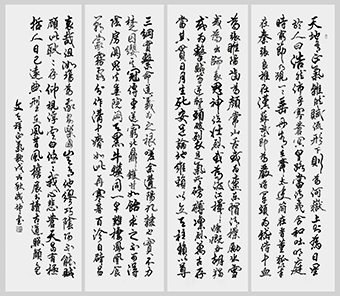 天地有正氣雜然賦流形下則為河嶽上則為日星
於人曰浩然沛乎塞蒼冥皇路當清夷含和吐明庭
時窮節乃見一一垂丹青在齊太史簡在晉董狐筆
在秦張良椎在漢蘇武節為嚴將軍頭為嵇侍中血
為張睢陽齒為顏常山舌或為遼東帽清操厲冰雪
或為出師表鬼神泣壯烈或為渡江楫慷慨吞胡羯
或為擊賊笏逆豎頭破裂是氣所磅礴凜烈萬古存
當其貫日月生死安足論地維賴以立天柱賴以尊
三綱實繫命道義為之根嗟余遘陽九隸也實不力
楚囚纓其冠傳車送窮北鼎鑊甘如飴求之不可得
陰房闃鬼火春院閟天黑牛驥同一皂雞棲鳳凰食
一朝蒙霧露分作溝中瘠如此再寒暑百沴自辟易
哀哉沮洳場為我安樂國豈有他繆巧陰陽不能賊
顧此耿耿在仰視浮雲白悠悠我心悲蒼天曷有極
哲人日已遠典刑在夙昔風簷展書讀古道照顏色
文天祥正氣歌戊戌秋